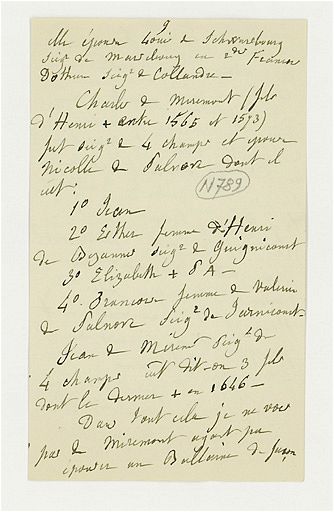 9
Elle épousa Louis de Schomberg
Seigr de en 2des François
Dothen Seigr de Collandre —
Charles de Miremont (fils
d'Henri + entre 1565 et 1573)
fut seigr de 4 champs et épousa
Nicolle de Palnose dont il
eut :
N789
1º Jean
2º Esther femme d'Henri
de Bezanne seigr de Guignicourt
3º Elizabeth + S A —
4º Françoise femme de Valerin
de Palnose Seigr de Jarnicourt
Jean de Miremt Seigr de
4 champs eut dit-on 3 fils
dont le dernier + en 1646 —
Dans tout cela je ne vois
pas de Miremont ayant pu
épouser un de façon